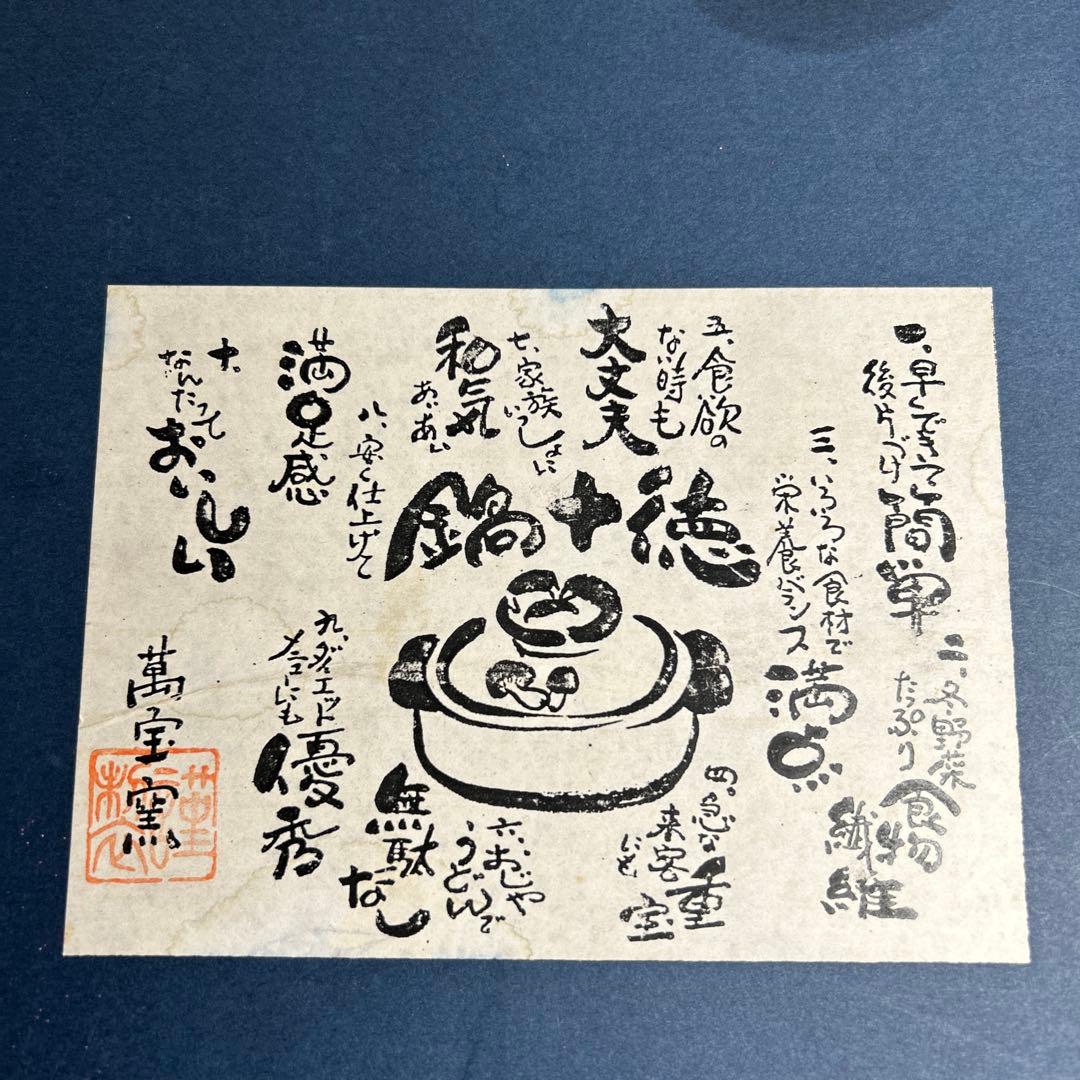 鍋十徳
一、早くできて
後片づけ簡単
二、冬野菜
たっぷり食物
繊維
三、いろいろな食材で
栄養バランス
満点
四、急な
来客
にも
重宝
五、食欲の
ない時も
大丈夫
六、おじや
うどんで
無駄
なし
七、家族
いっしょに
和気
あいあい
八、安く仕上げて
満足感
九、ダイエット
メニューにも
優秀
十、
なんたって
おいしい
萬宝窯